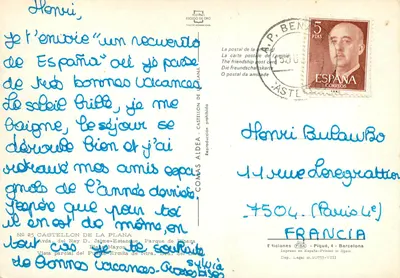 Henri,
Je t'envoie "un recuerdo
de España" où je passe
de très bonnes vacances.
Le soleil brille, je me
baigne, le séjour se
déroule bien et j'ai
retrouvé mes amis espa-
gnols de l'année dernière.
J'espère que pour toi
il en est de même, en
tout cas je te souhaite
de bonnes vacances. Grosses bises
Sylvia
Nº 8 CASTELLON DE LA PLANA
COMAS ALDEA - CASTELLON DE LA PLANA
Reproducción prohibida
La postal de la amistad
La carte postale de l'amitié
The friendship post card
Die freundschaftskarte
O postal da amizade
A.P. BEN
5
PTAS
ESPAÑA
CORREOS
Henri
11 rue
7504 (Paris 4e)
FRANCIA
Piqué, 4 - Barcelona